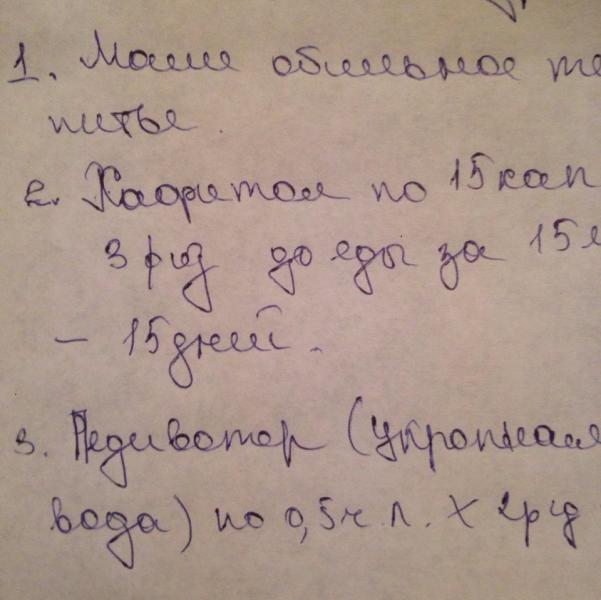 1. Маме обильное те
питье.
2. Хафитол по 15 кап
3 р/д до еды за 15
- 15 дней.
3. Педиватор (укропная
вода) по 0,5 ч.л. х 2 р/д